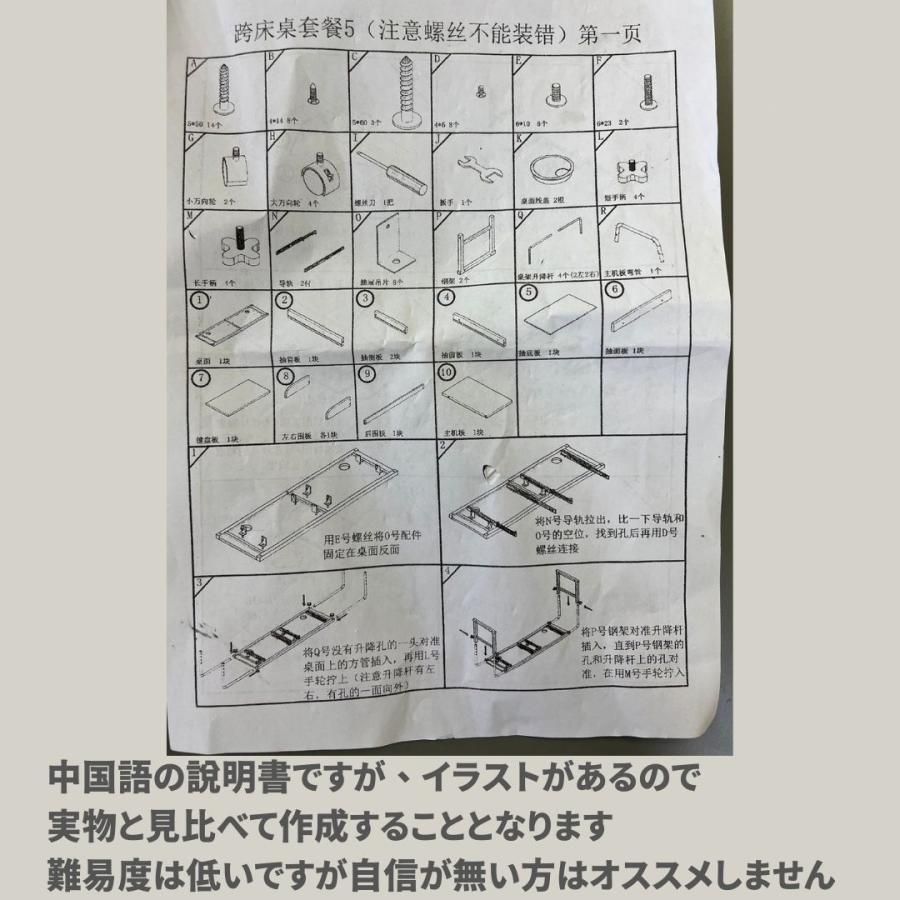 跨床桌套餐5（注意螺丝不能装错）第一页
A B C D E F
5*50 14个 4*14 8个 5*60 3个 4*6 8个 6*10 8个 6*23 2个
G H I J K L
小万向轮 2个 大万向轮 4个 螺丝刀 1把 扳手 1个 桌面线盖 2组 短手柄 4个
M N O P Q R
长手柄 4个 导轨 2付 抽屉吊片 8个 钢架 2个 桌架升降杆 4个(2左2右) 主机板弯管 1个
1 2 3 4 5 6
桌面 1块 抽背板 1块 抽侧板 2块 抽前板 1块 抽底板 1块 抽面板 1块
7 8 9 10
键盘板 1块 左右围板 各1块 后围板 1块 主机板 1块
1
用E号螺丝将O号配件
固定在桌面反面
2
将N号导轨拉出，比一下导轨和
O号的空位，找到孔后再用D号
螺丝连接
3
将Q号没有升降孔的一头对准
桌面上的方管插入，再用L号
手轮拧上（注意升降杆有左
右，有孔的一面向外）
4
将P号钢架对准升降杆
插入，直到P号钢架的
孔和升降杆上的孔对
准，在用M号手轮拧入
中国語の説明書ですが、イラストがあるので
実物と見比べて作成することとなります
難易度は低いですが自信が無い方はオススメしません